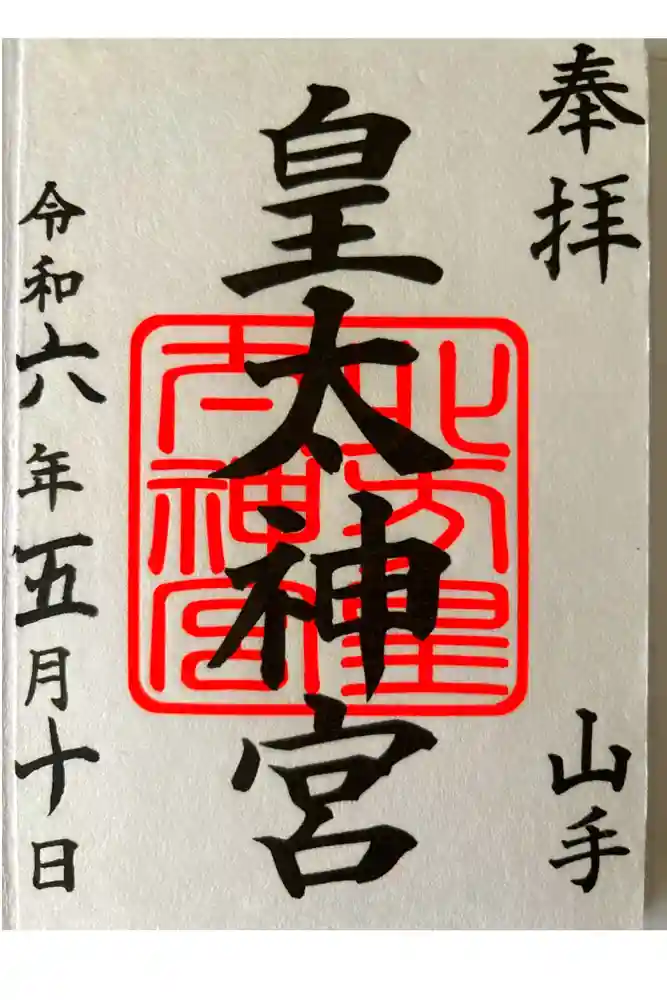 奉拝
山手
皇太神宮
北方皇
太神宮
令和六年五月十日